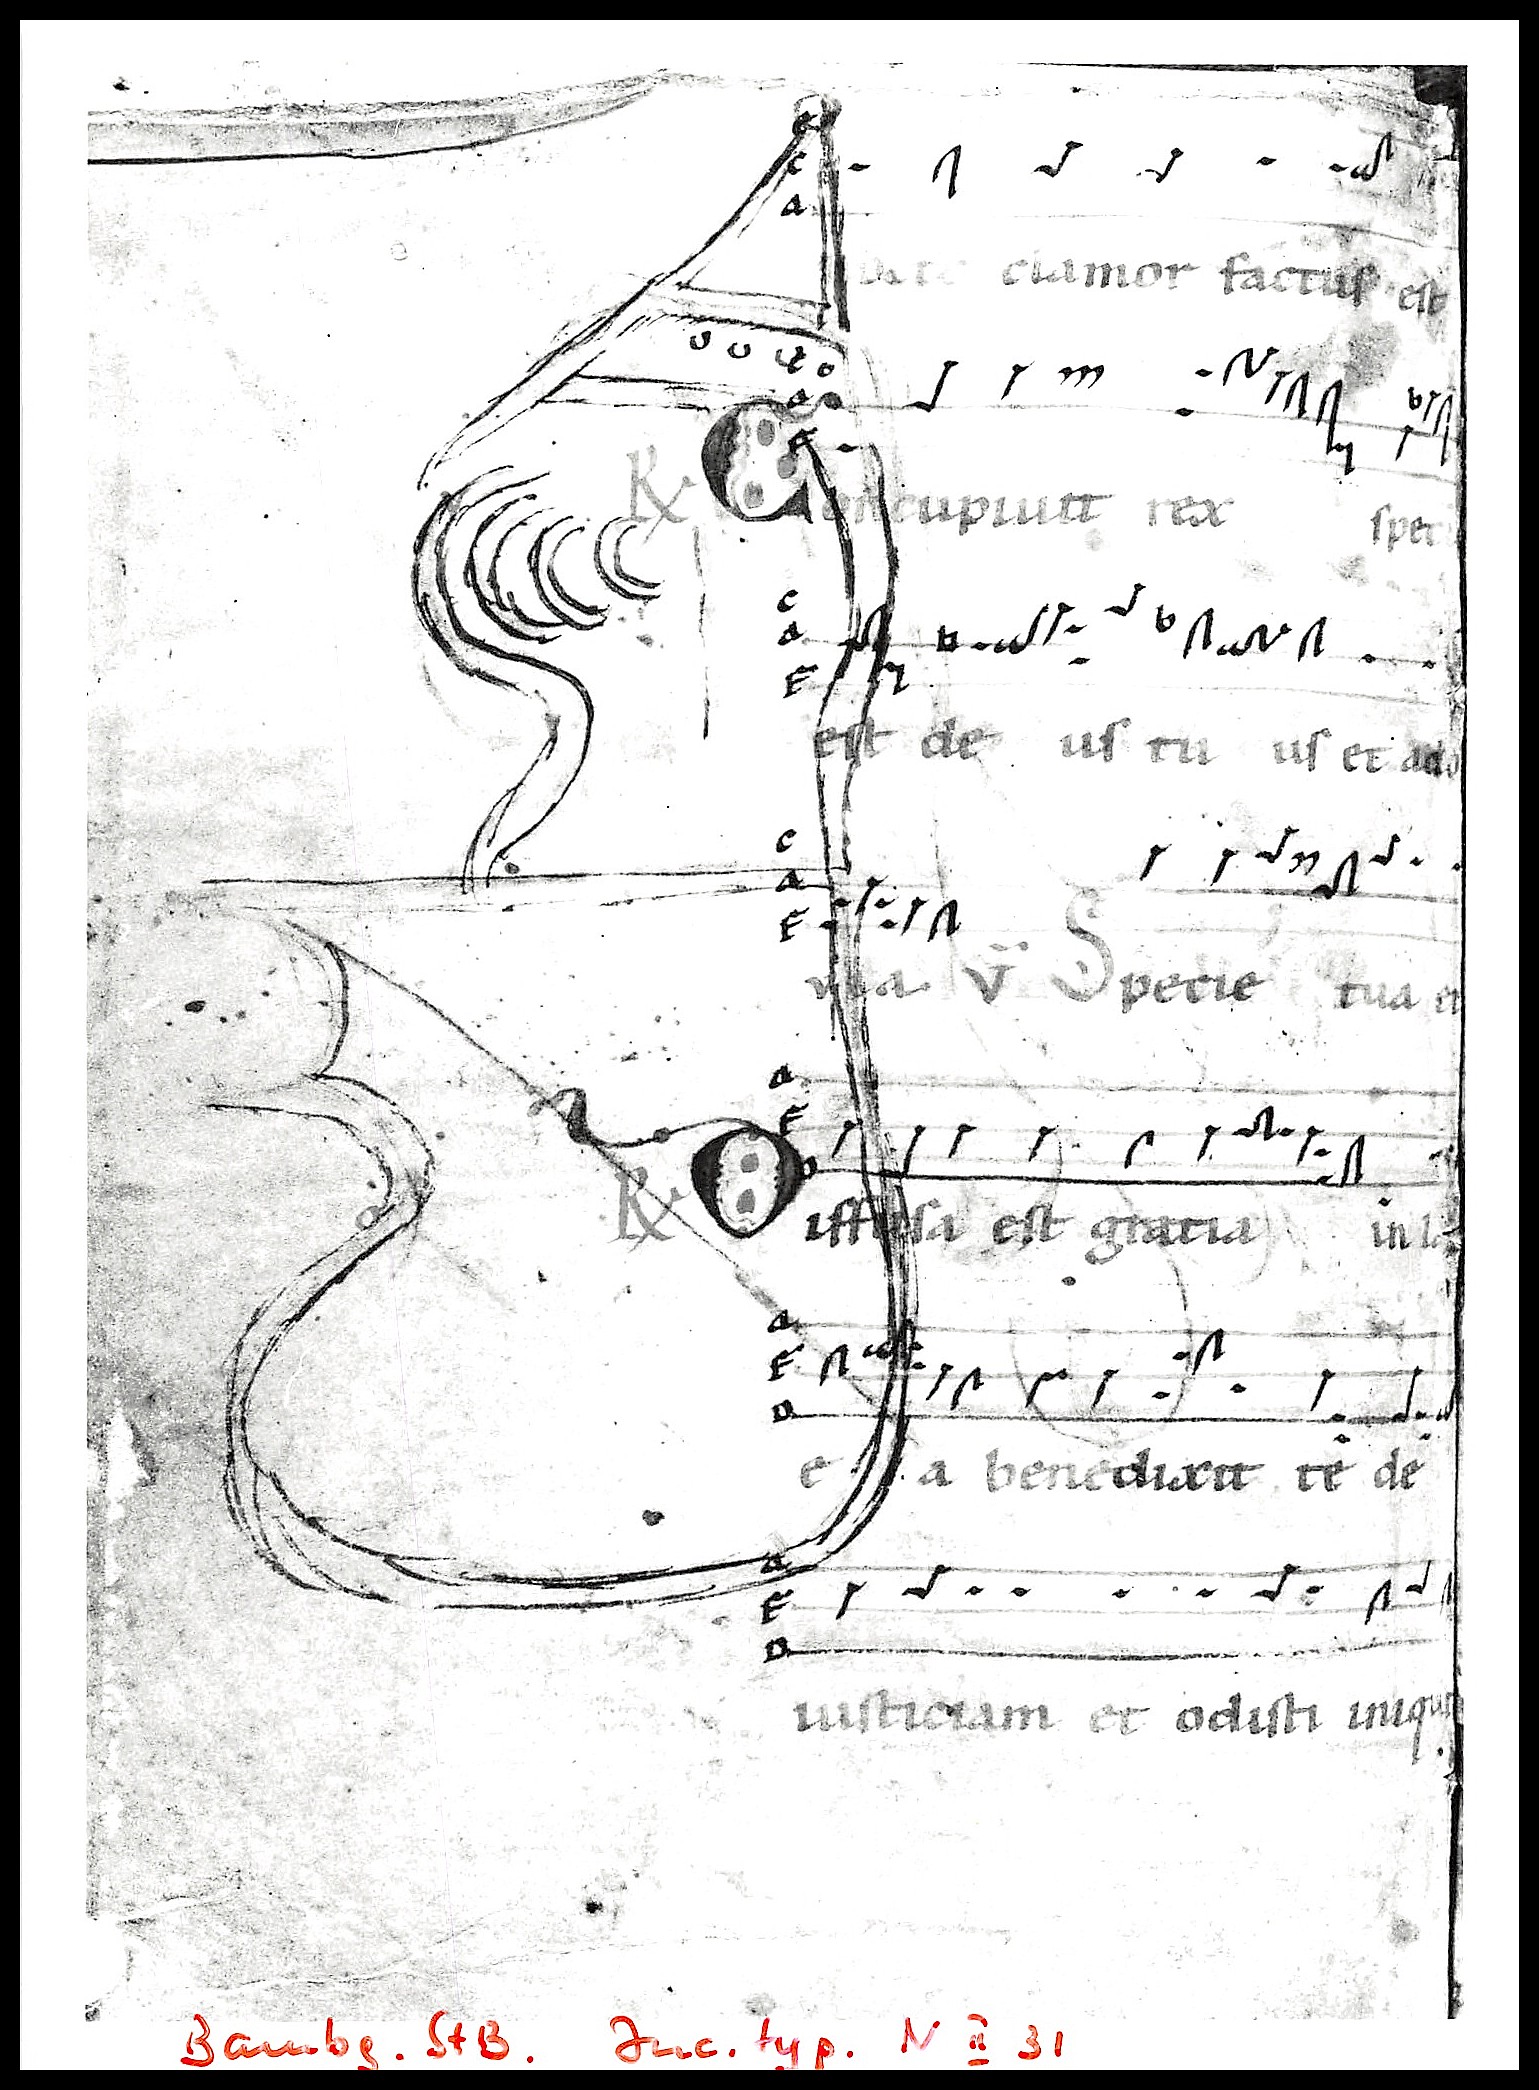 clamor factus est
℟ Concupiuit rex spec
est de us tu us et ado
V Specie tua et
℟ Diffusa est gratia in la
e a benedixit te de
iusticiam et odisti iniqui
Bambg. StB. Inc. typ. N II 31